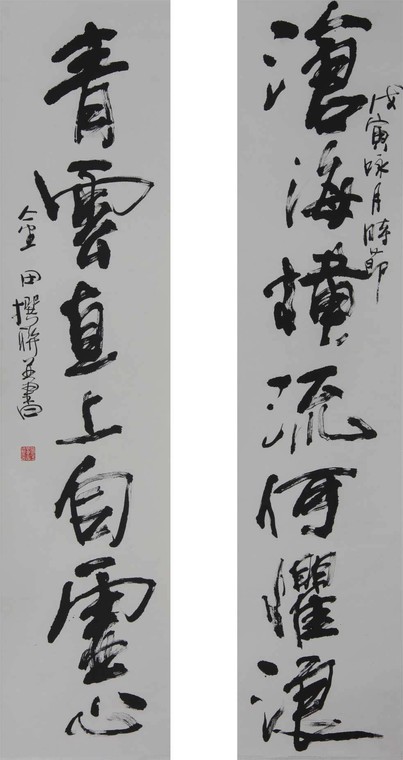 滄海橫流何懼浪
戊寅咏月時節
青雲直上自虛心
金田撰聯並書